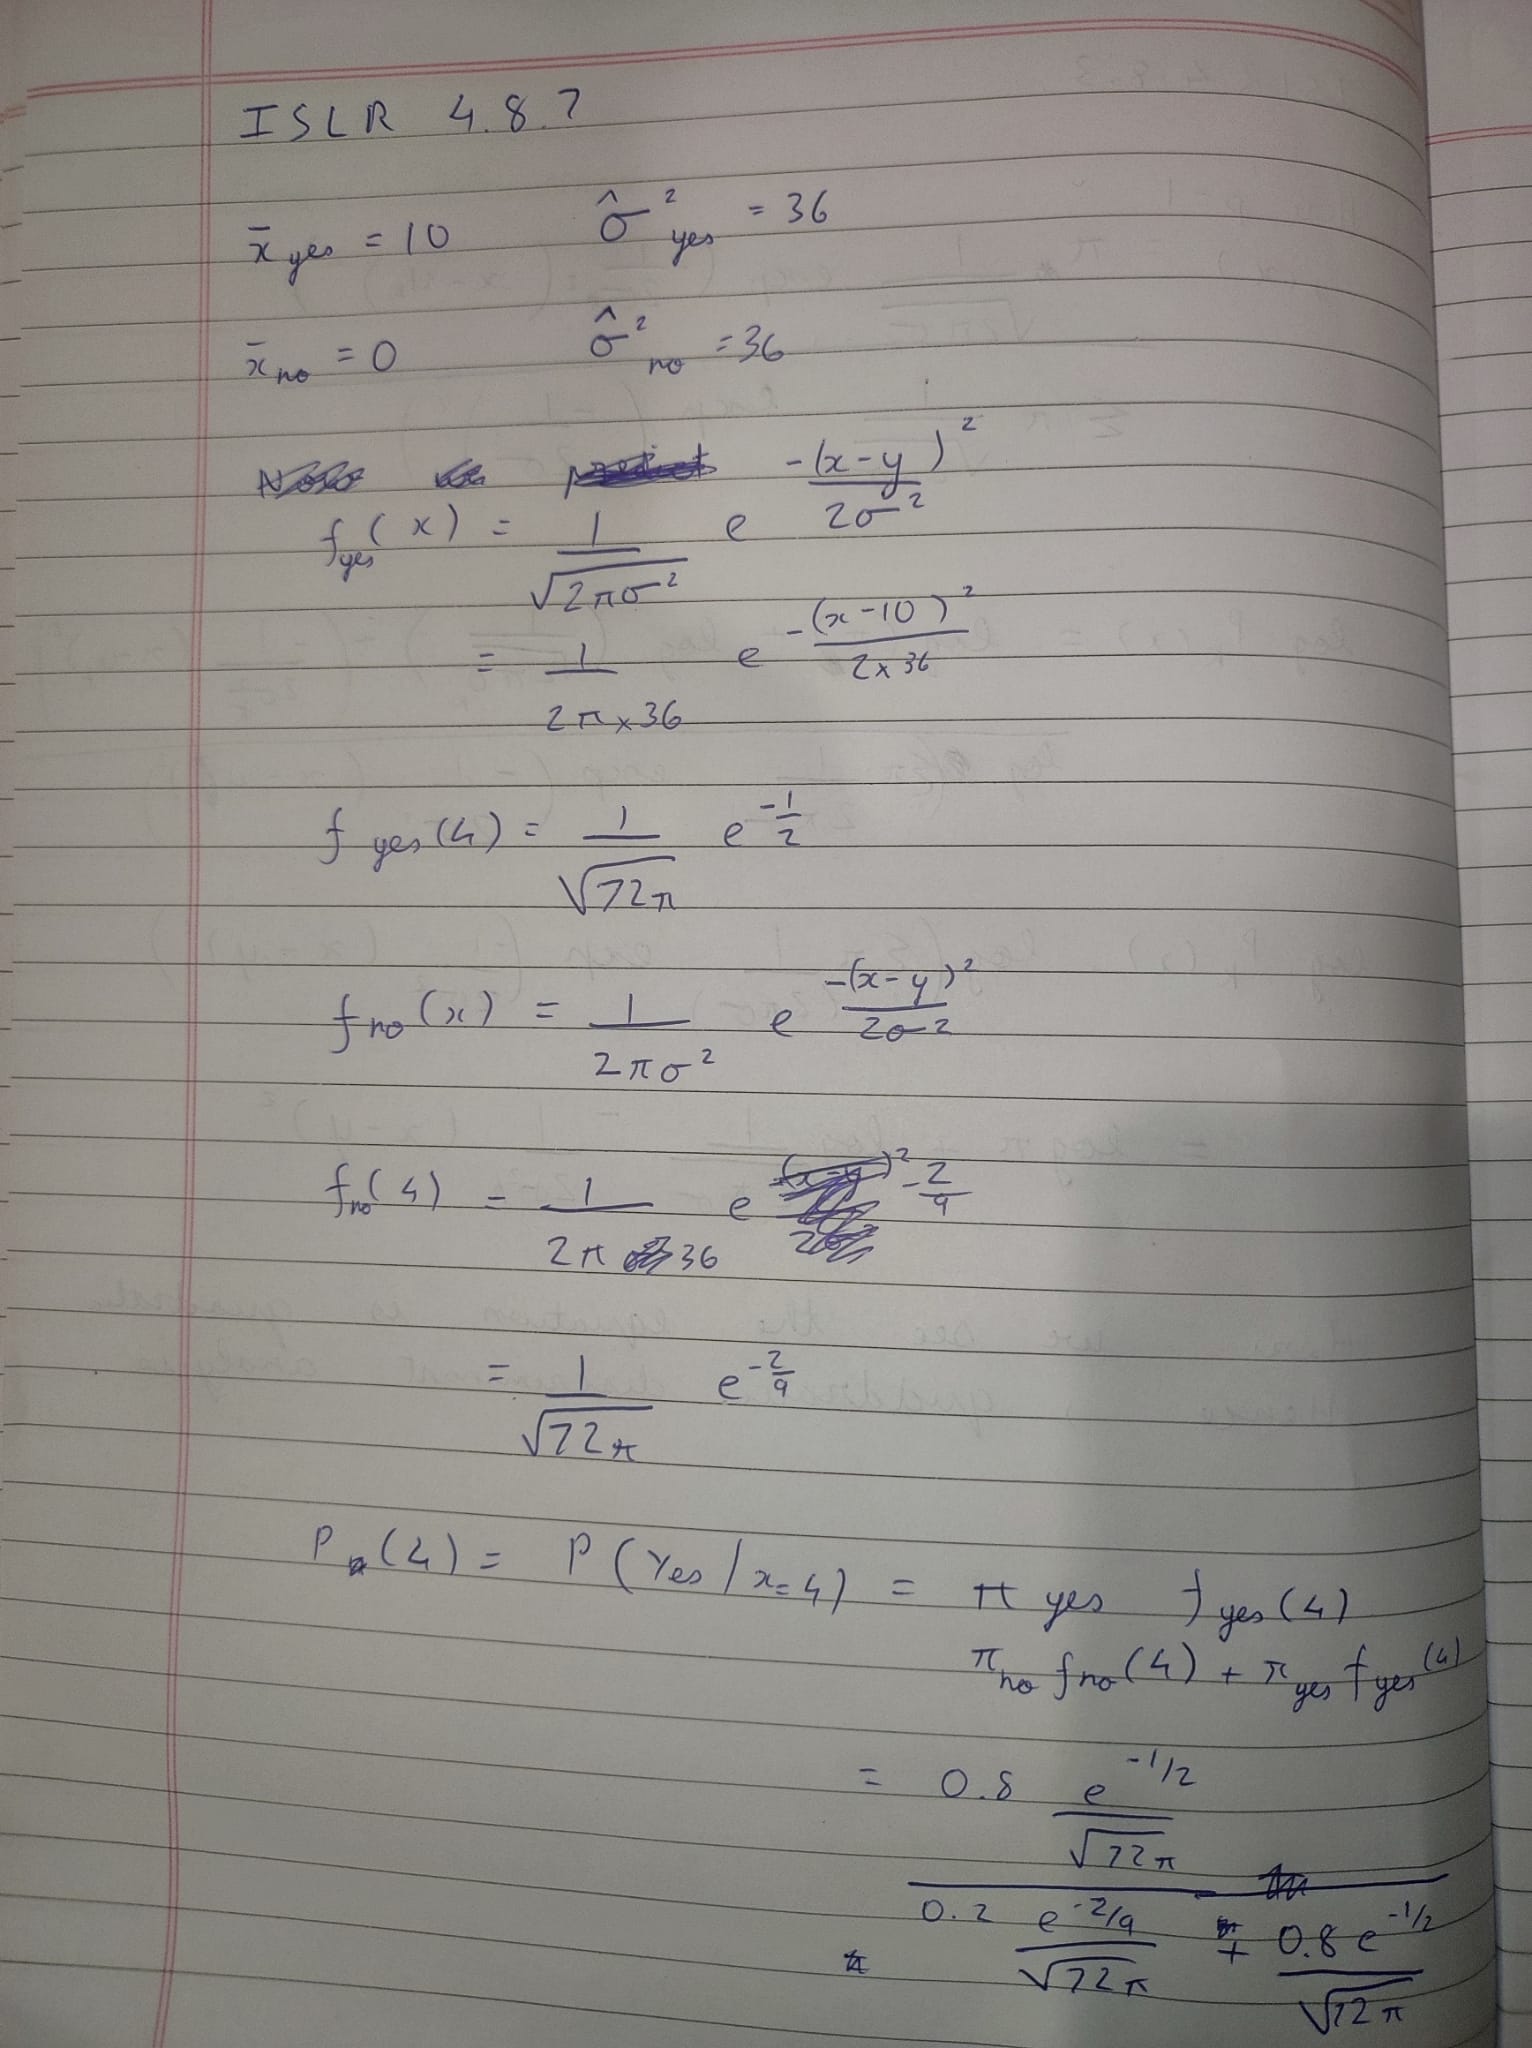 ISLR 4.8.7
x̄ yes = 10 σ̂² yes = 36
x̄ no = 0 σ̂² no = 36
f yes (x) = 1/√(2πσ²) e^(-(x-y)²/2σ²)
= 1/(2π×36) e^(-(x-10)²/(2×36))
f yes (4) = 1/√(72π) e^(-1/2)
f no (x) = 1/(2πσ²) e^(-(x-y)²/2σ²)
f no (4) = 1/(2π 36) e^(-2/9)
= 1/√(72π) e^(-2/9)
P (4) = P (Yes / x=4) = π yes f yes (4)
π no f no (4) + π yes f yes (4)
= 0.8 e^(-1/2)/√(72π)
0.2 e^(-2/9)/√(72π) + 0.8 e^(-1/2)/√(72π)